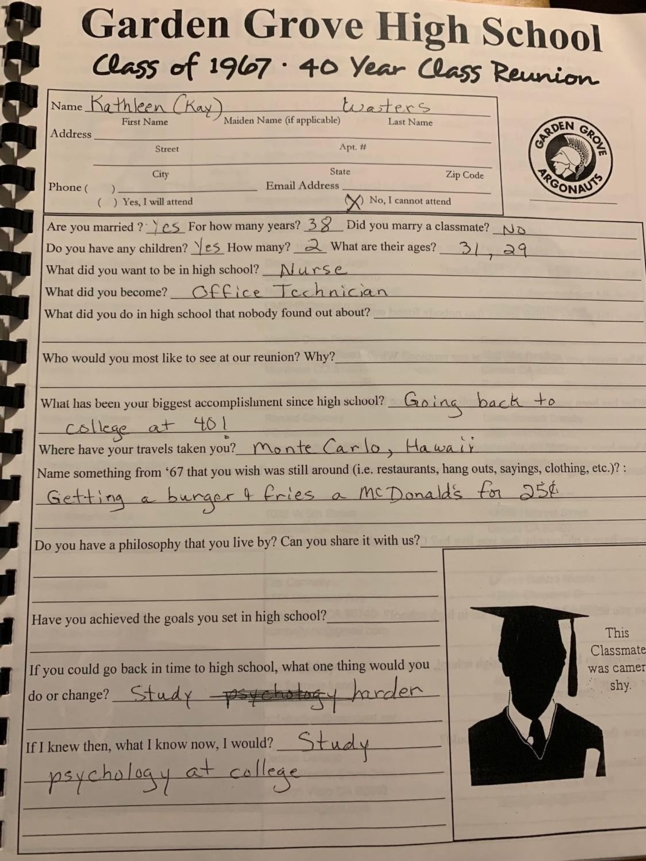 Garden Grove High School
Class of 1967 · 40 Year Class Reunion
Name Kathleen (Kay) Wosters
First Name Maiden Name (if applicable) Last Name
Address
Street Apt. #
City State Zip Code
Phone ( ) Email Address
( ) Yes, I will attend (X) No, I cannot attend
GARDEN GROVE
ARGONAUTS
Are you married ? Yes For how many years? 38 Did you marry a classmate? No
Do you have any children? Yes How many? 2 What are their ages? 31, 29
What did you want to be in high school? Nurse
What did you become? Office Technician
What did you do in high school that nobody found out about?
Who would you most like to see at our reunion? Why?
What has been your biggest accomplishment since high school? Going back to
college at 40!
Where have your travels taken you? Monte Carlo, Hawaii
Name something from ‘67 that you wish was still around (i.e. restaurants, hang outs, sayings, clothing, etc.)? :
Getting a burger & fries a McDonald's for 25¢
Do you have a philosophy that you live by? Can you share it with us?
Have you achieved the goals you set in high school?
If you could go back in time to high school, what one thing would you
do or change? Study psychology harder
If I knew then, what I know now, I would? Study
psychology at college
This
Classmate
was camer
shy.